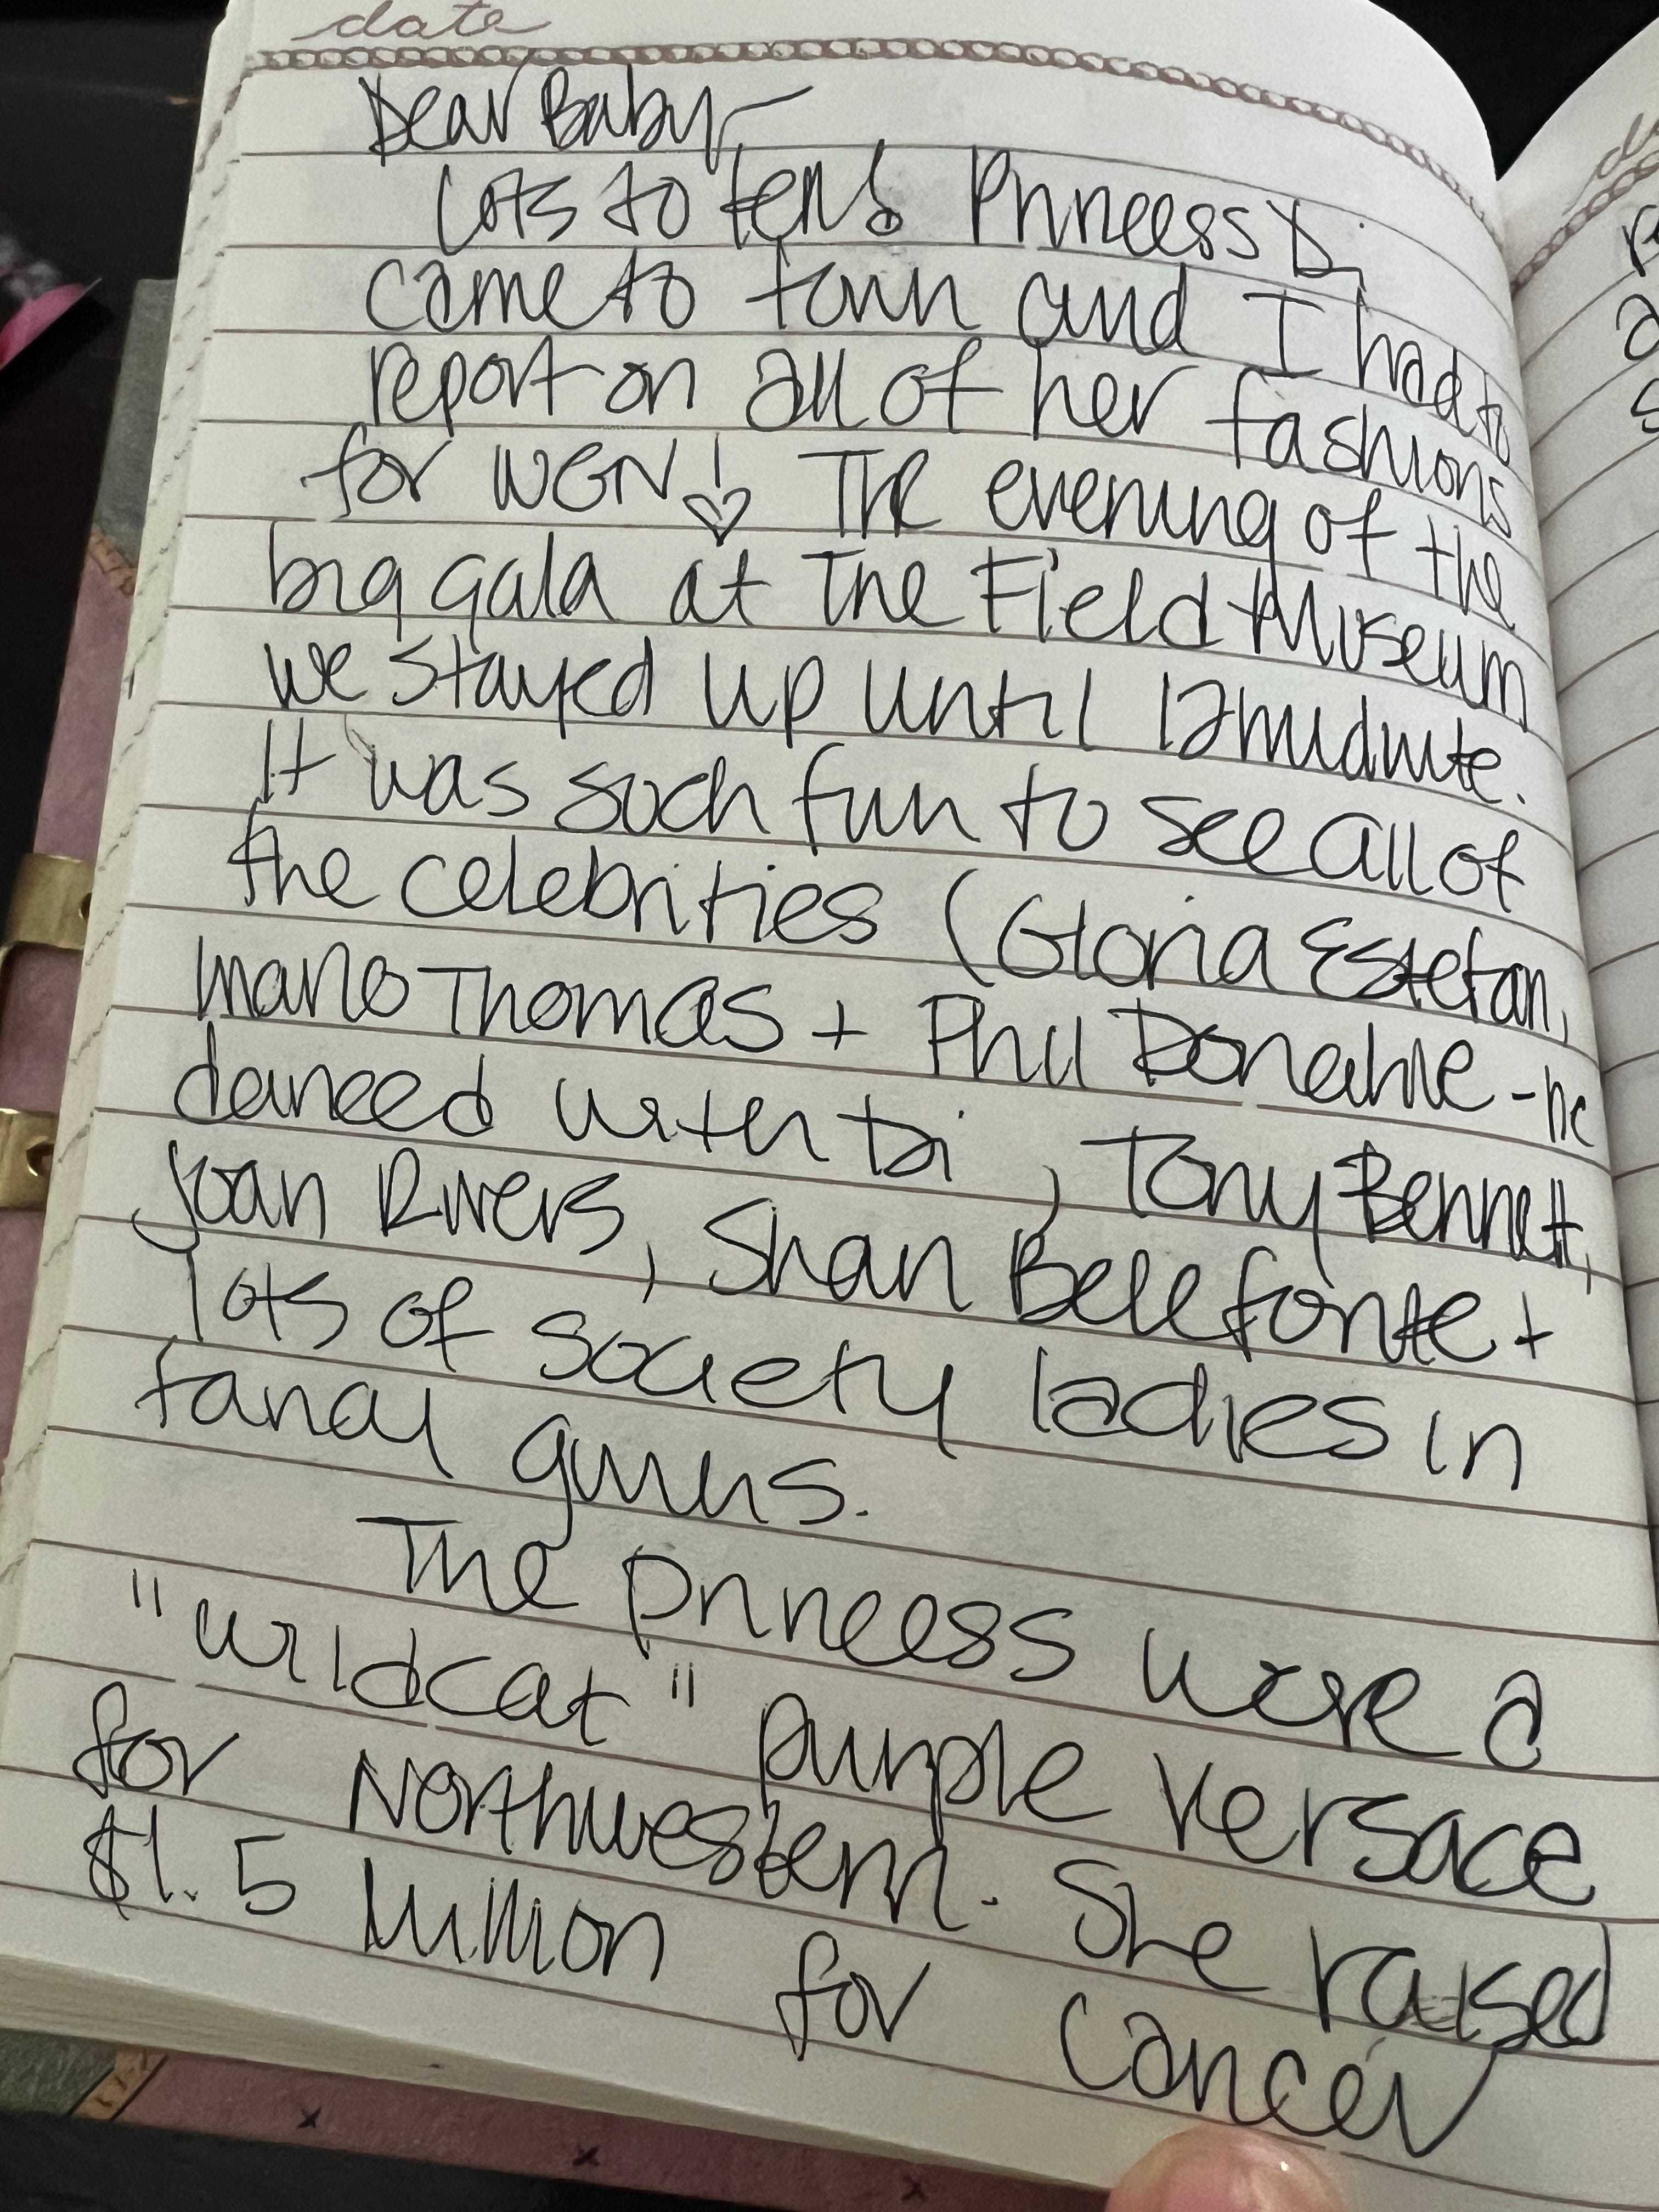 date
Dear Baby—
Lots to tell! Princess Di
came to town and I had to
report on all of her fashions
for WGN! ♡ The evening of the
big gala at The Field Museum
we stayed up until 12 midnite.
It was such fun to see all of
the celebrities (Gloria Estefan,
Marlo Thomas + Phil Donahue - he
danced with Di, Tony Bennett,
Joan Rivers, Shari Belefonte +
lots of society ladies in
fancy gowns.
The princess wore a
"wildcat" purple Versace
for Northwestern. She raised
$1.5 million for cancer